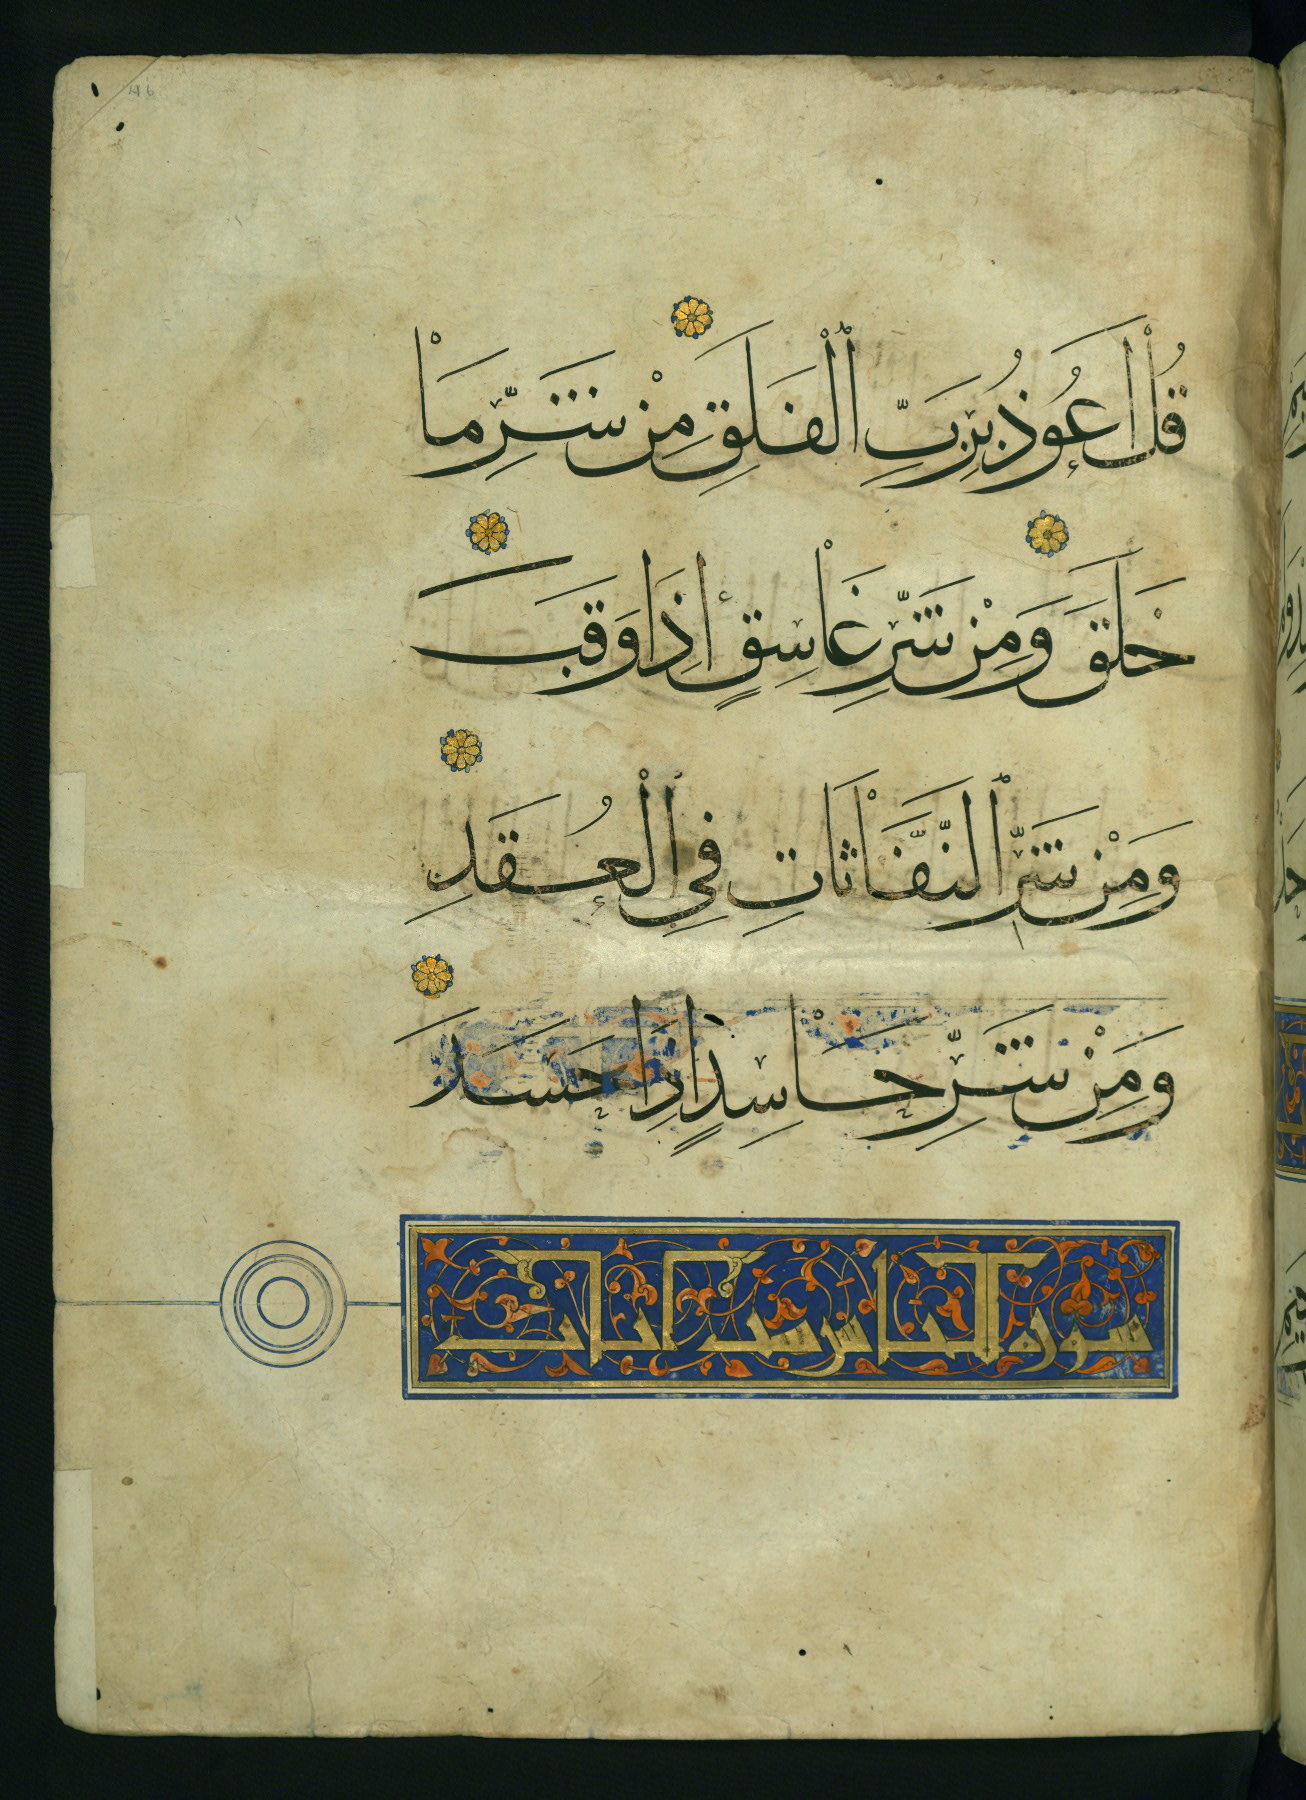 قُلْ اَعُوذُ بِرَبِّ ٱلْفَلَقِ مِنْ شَرِّ مَا
خَلَقَ وَمِنْ شَرِّ غَاسِقٍ اِذَا وَقَبَ
وَمِنْ شَرِّ ٱلنَّفَّاثَاتِ فِي ٱلْعُقَدِ
وَمِنْ شَرِّ حَاسِدٍ اِذَا حَسَدَ
سورة الناس ست ايات